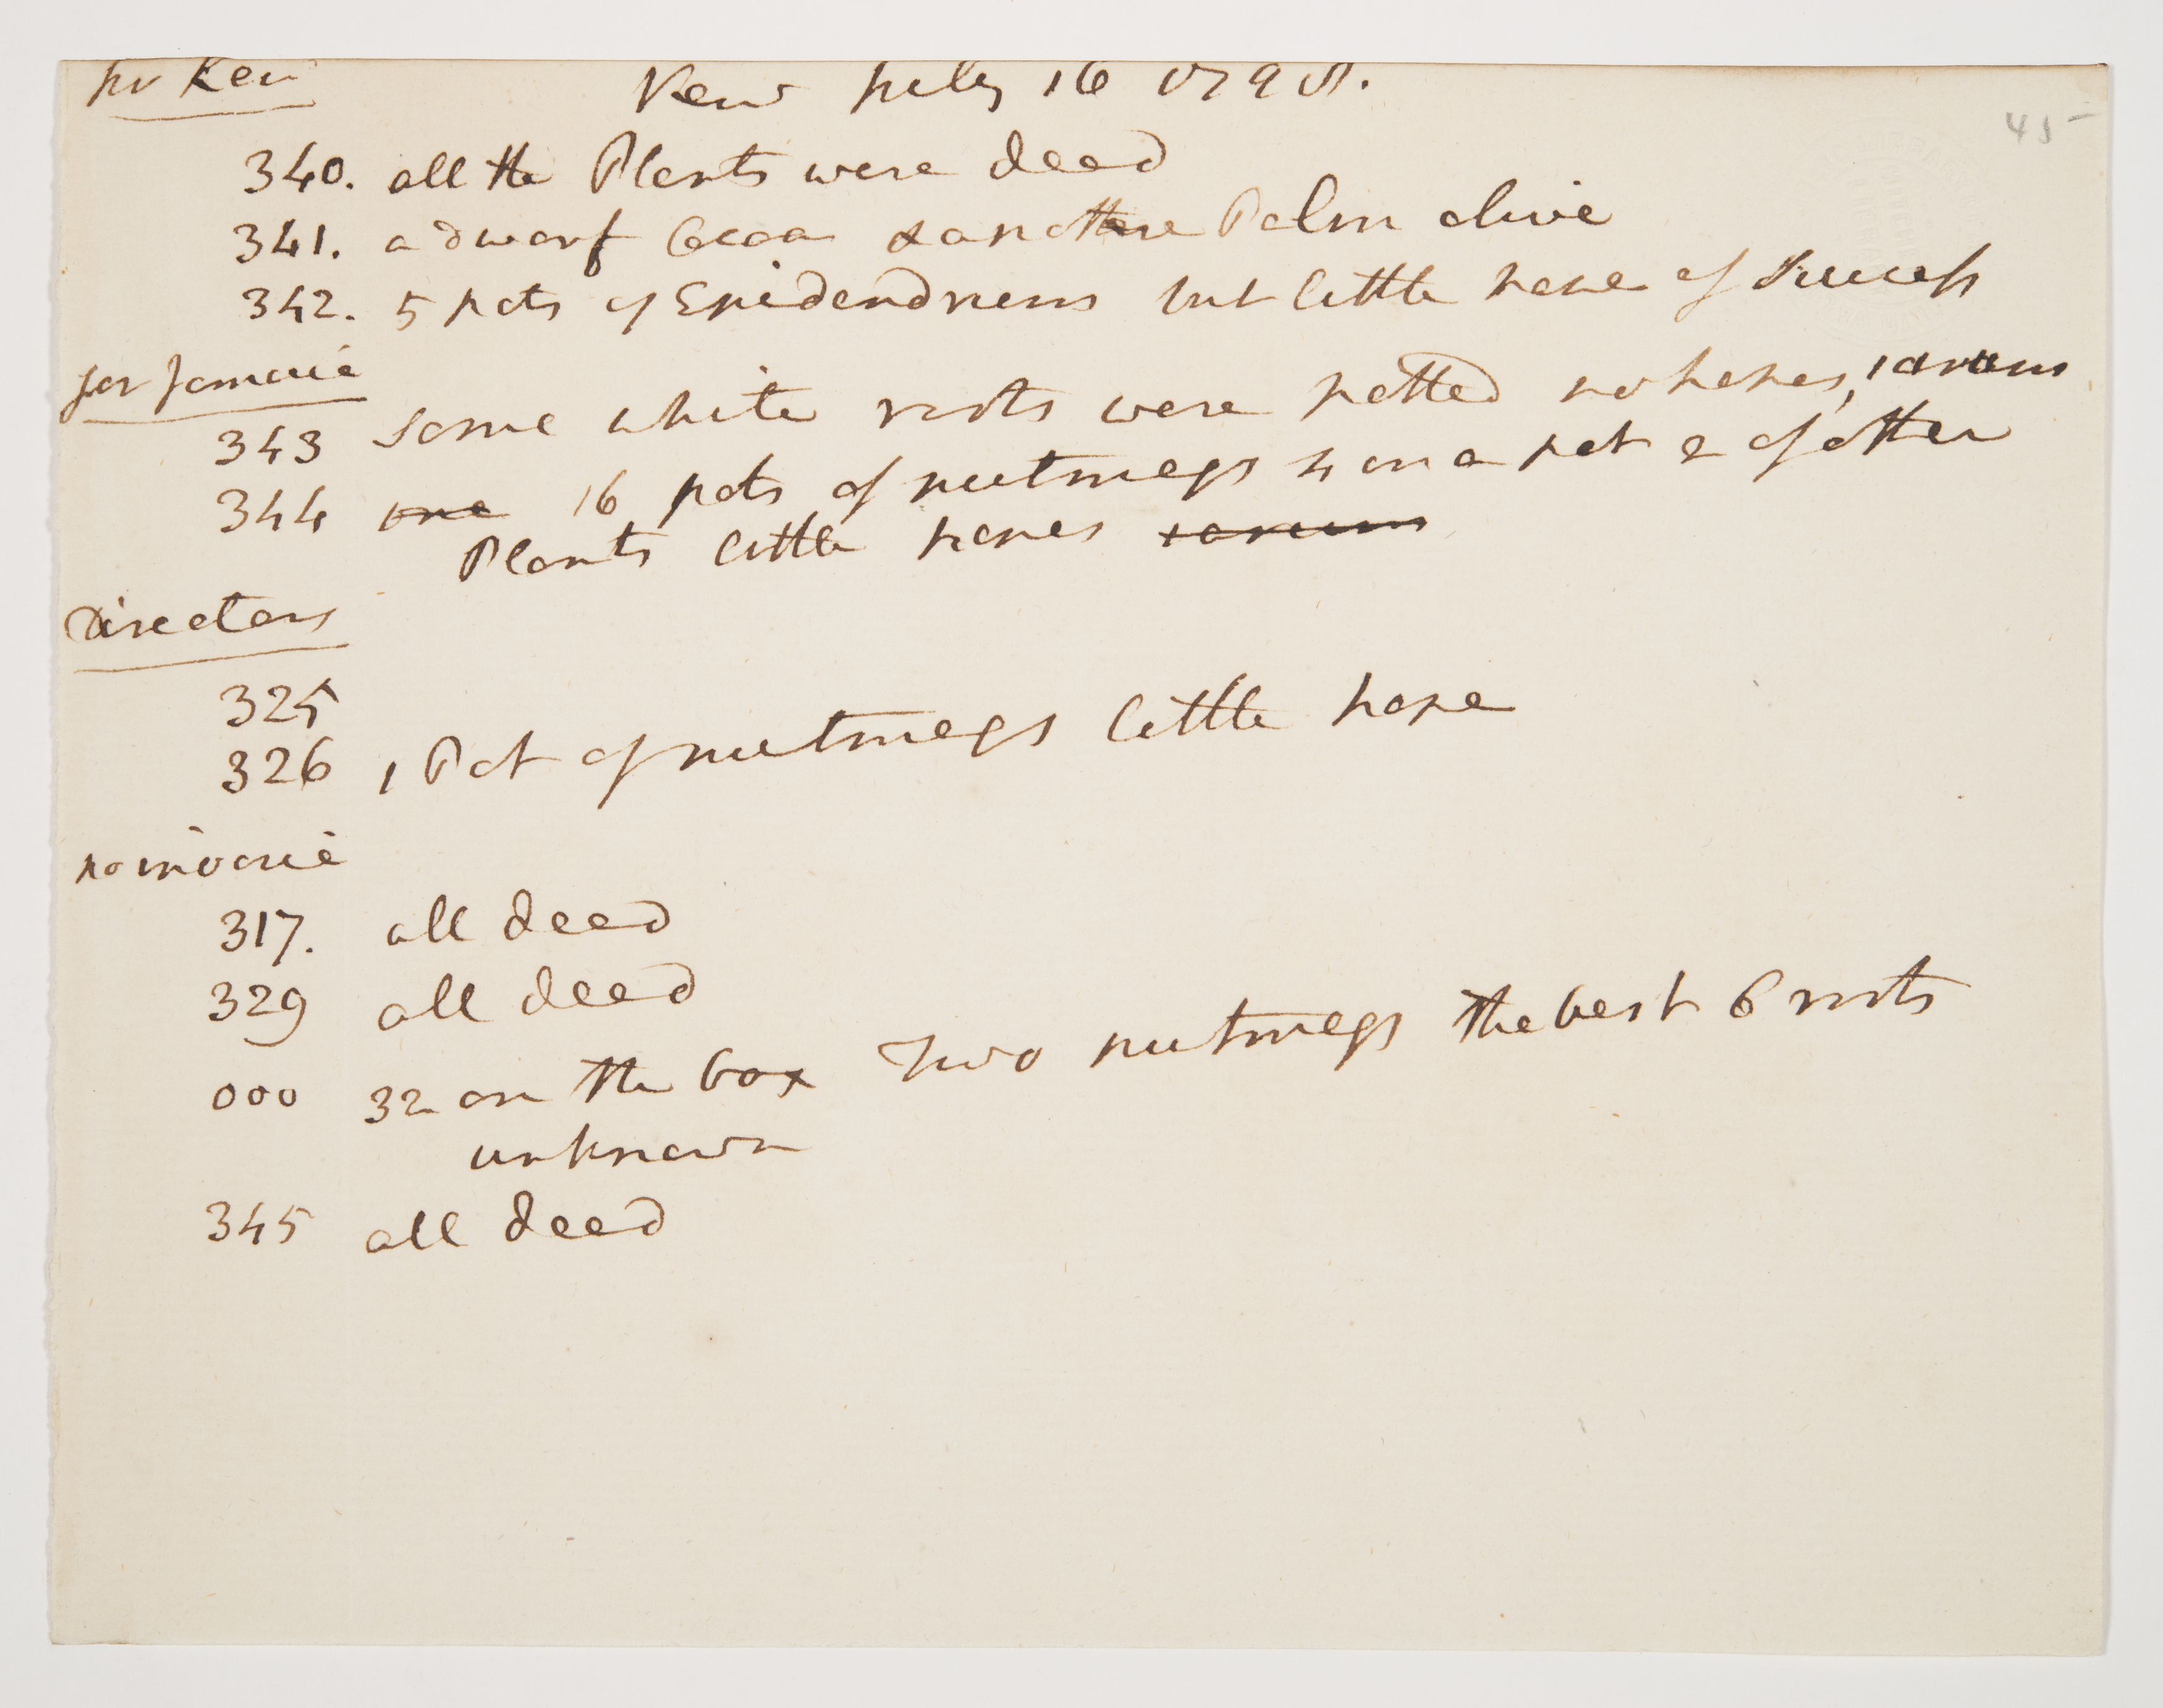 for Kew
Kew July 16 1798.
45
340. all the Plants were dead
341. a dwarf Cocoa & another Palm alive
342. 5 pots of Epidendrums but little hope of Success
for Jamaic
343 some white roots were potted no hopes, 1 arum
344 one 16 pots of nutmegs 4 on a pot 2 of other
Plants little hopes 1 arum
Directors
325
326 1 Pot of nutmegs little hope
no invoice
317. all dead
329 all dead
000 32 on the box Two nutmegs the best 6 roots
unknown
345 all dead